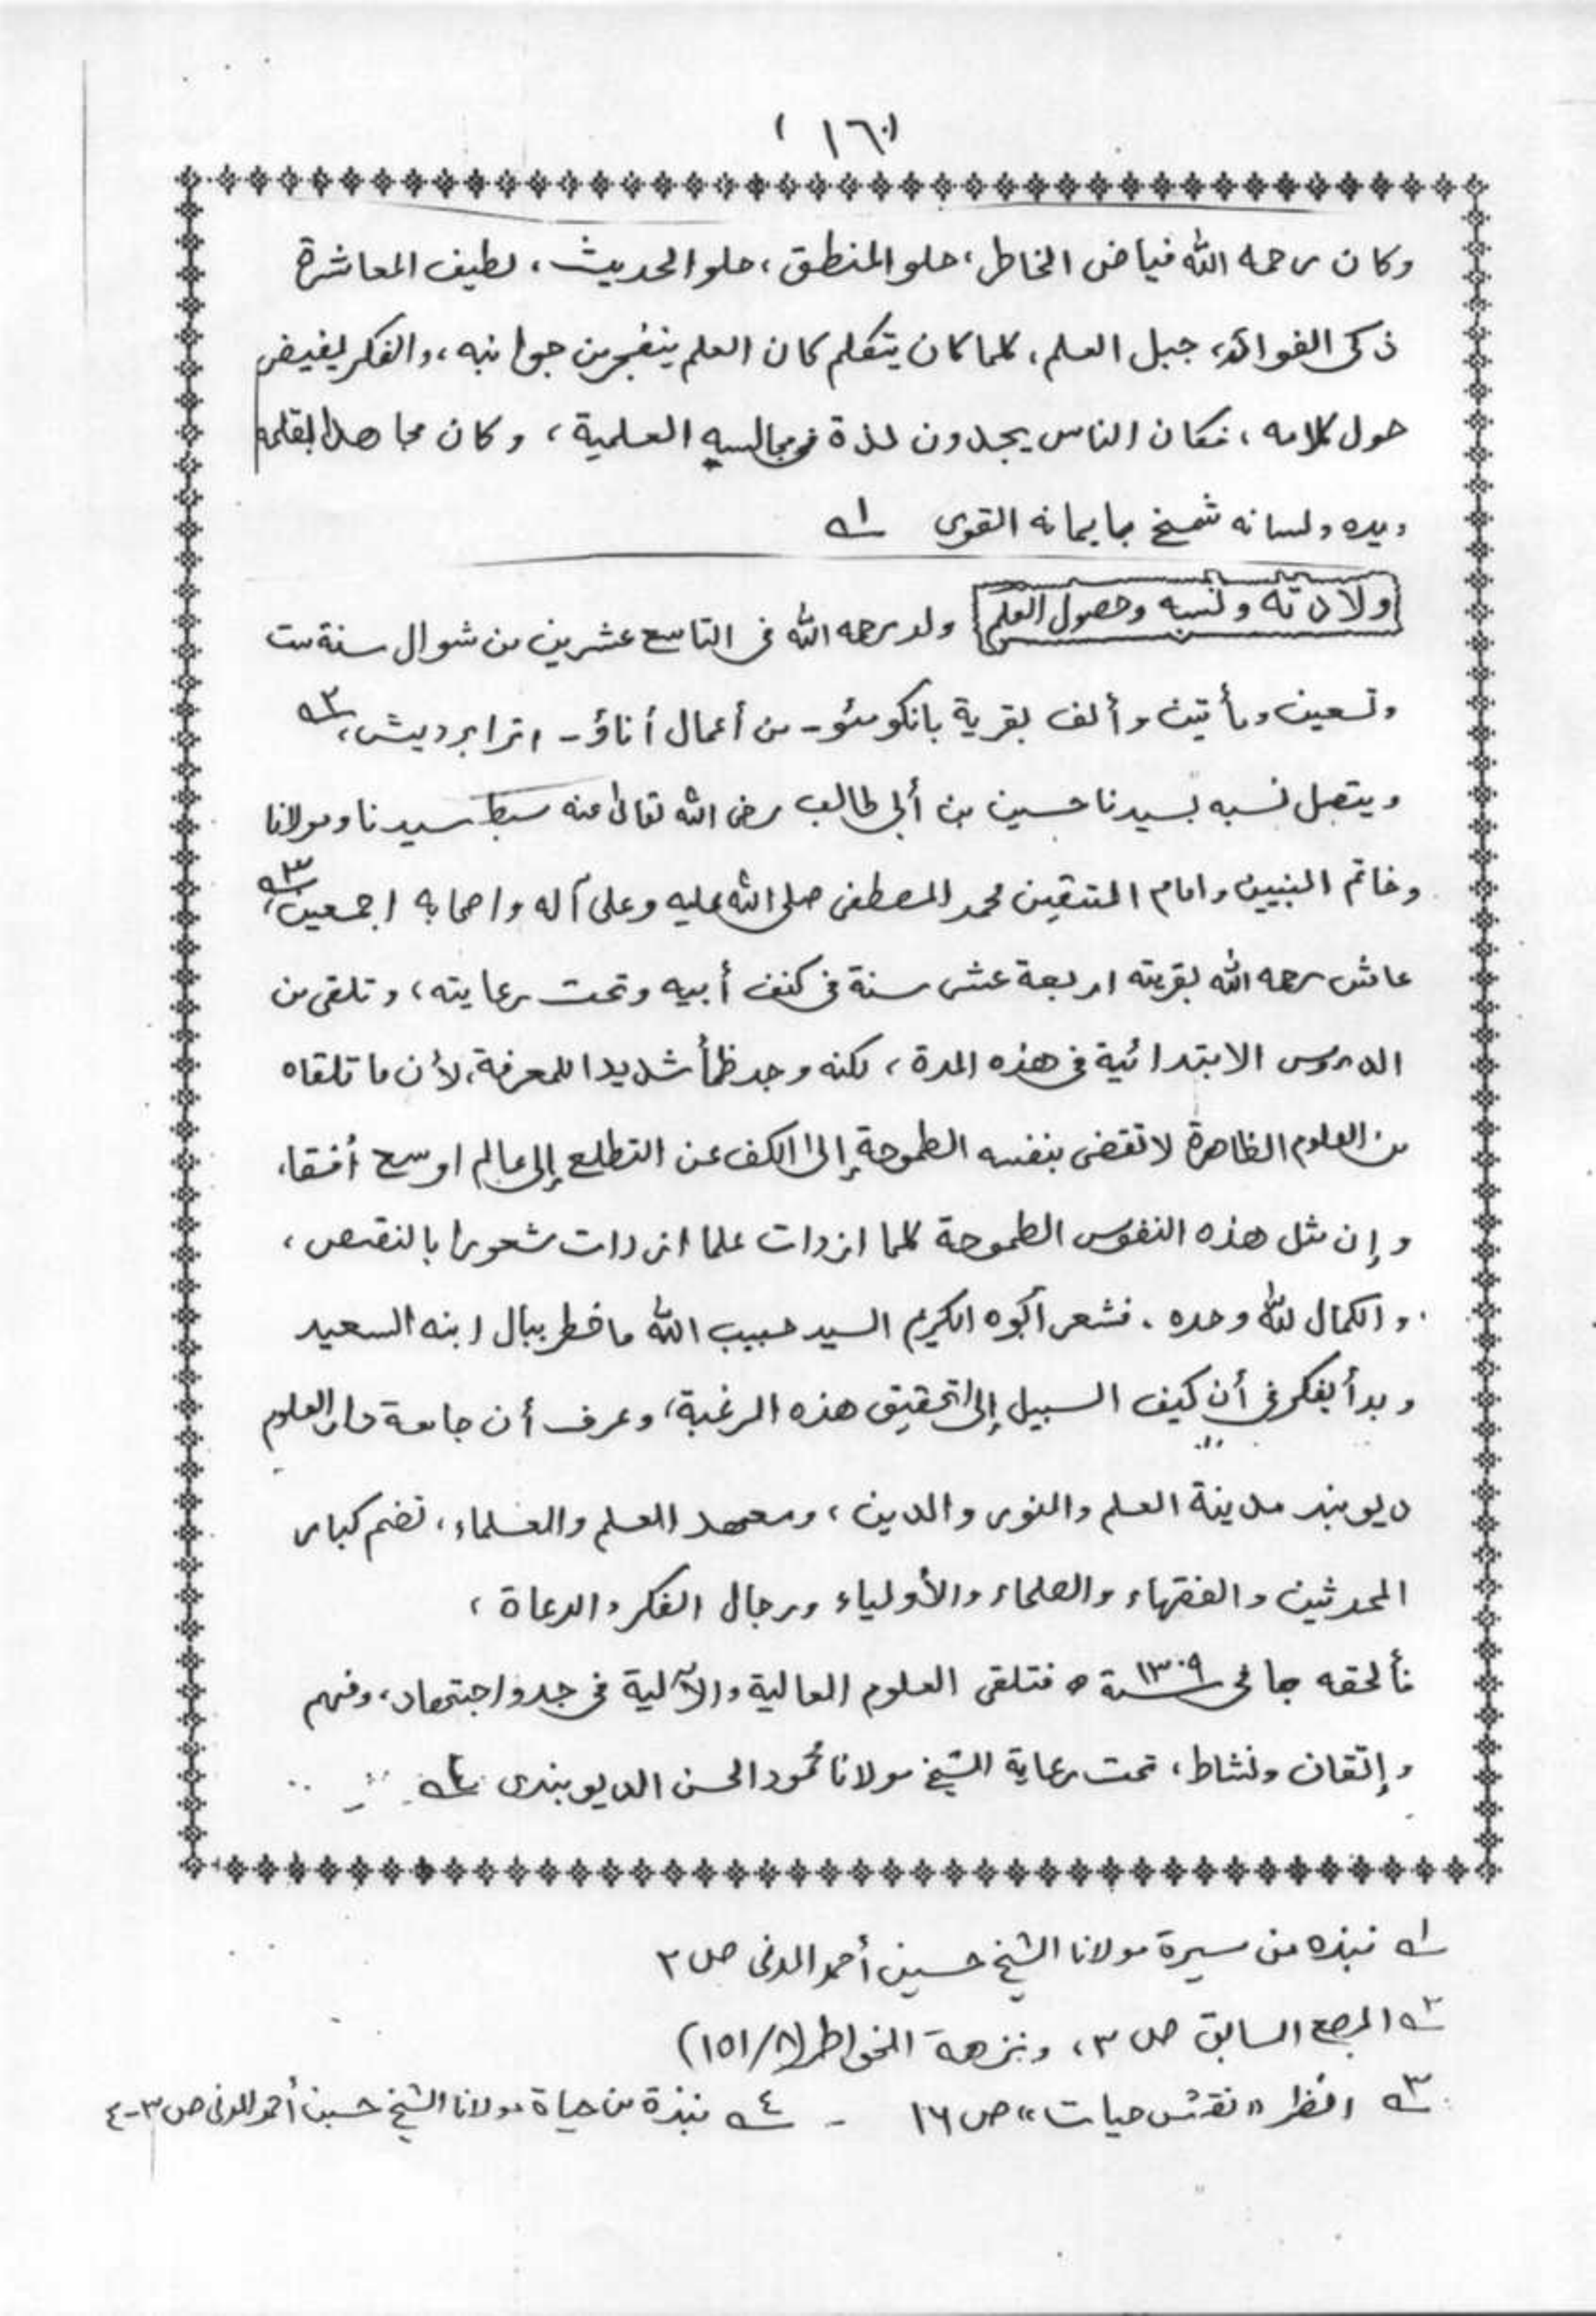 (١٦٠)
وكان رحمه الله فياض الخاطر، حلو المنطق، حلو الحديث، لطيف المعاشرة
ذكى الفوائد، جبل العلم، كلما كان يتكلم كان العلم ينفجر من جوانبه، والفكر يفيض
حول كلامه، فكان الناس يجدون لذة فى مجالسه العلمية، وكان مجاهدا بقلمه
ويده ولسانه شمخ بايمانه القوى ١ه
ولادته ونسبه وحصول العلم ولد رحمه الله فى التاسع عشرين من شوال سنة ست
وتسعين ومأتين وألف بقرية بانكومئو - من أعمال أناؤ - اترابرديش، ٢ه
ويتصل نسبه بسيدنا حسين بن أبى طالب رضى الله تعالى عنه سبط سيدنا ومولانا
وخاتم النبيين وامام المتقين محمد المصطفى صلى الله عليه وعلى آله واصحابه اجمعين، ٣ه
عاش رحمه الله بقريته اربعة عشر سنة فى كنف أبيه وتحت رعايته، وتلقى من
الدروس الابتدائية فى هذه المدة، لكنه وجد ظمأ شديدا للمعرفة، لأن ما تلقاه
من العلوم الظاهرة لا تقضى بنفسه الطموحة إلى الكف عن التطلع إلى عالم اوسع أفقا،
وإن مثل هذه النفوس الطموحة كلما ازدات علما ازدات شعورا بالنقص،
والكمال لله وحده. فشعر أبوه الكريم السيد حبيب الله ما خطر ببال ابنه السعيد
وبدأ يفكر فى أن كيف السبيل إلى تحقيق هذه الرغبة، وعرف أن جامعة دار العلوم
ديوبند مدينة العلم والنور والدين، ومعهد العلم والعلماء، تضم كبار
المحدثين والفقهاء والعلماء والأولياء ورجال الفكر والدعاة،
فألحقه بها فى سنة ١٣٠٩ ه فتلقى العلوم العالية والآلية فى جد واجتهاد، وفهم
وإتقان ونشاط، تحت رعاية الشيخ مولانا محمود الحسن الديوبندى ٤ه
١ه نبذه من سيرة مولانا الشيخ حسين أحمد المدنى ص ٢
٢ه المرجع السابق ص ٣، ونزهة الخواطر (٨/١٥١)
٣ه انظر «نقش حيات» ص ١٦ - ٤ه نبذة من حياة مولانا الشيخ حسين أحمد المدنى ص ٣-٤